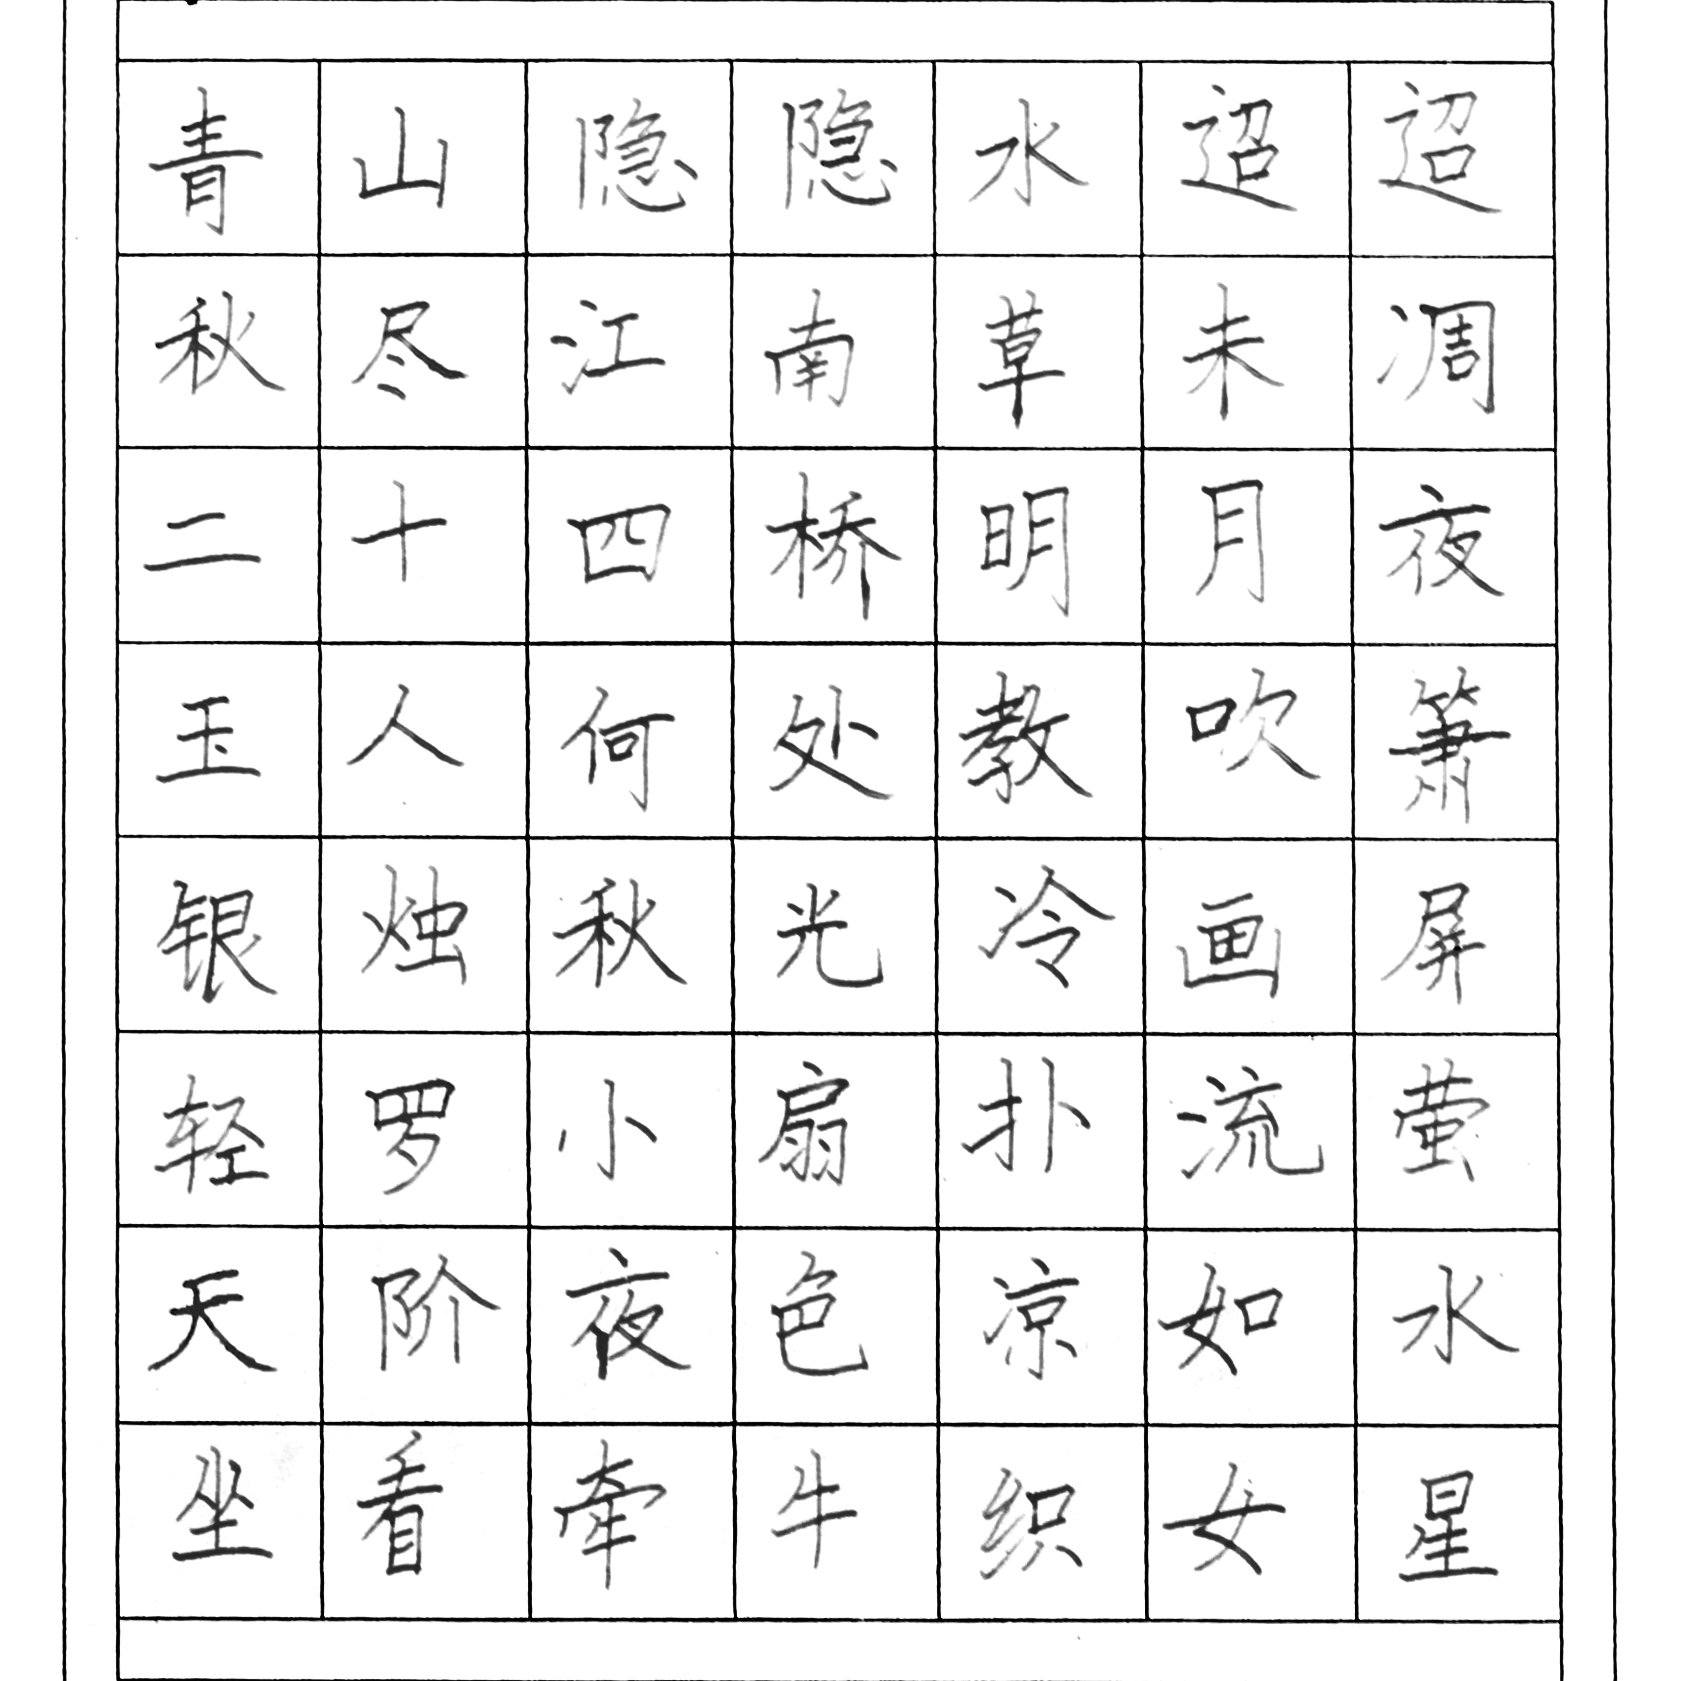 青山隐隐水迢迢
秋尽江南草未凋
二十四桥明月夜
玉人何处教吹箫
银烛秋光冷画屏
轻罗小扇扑流萤
天阶夜色凉如水
坐看牵牛织女星